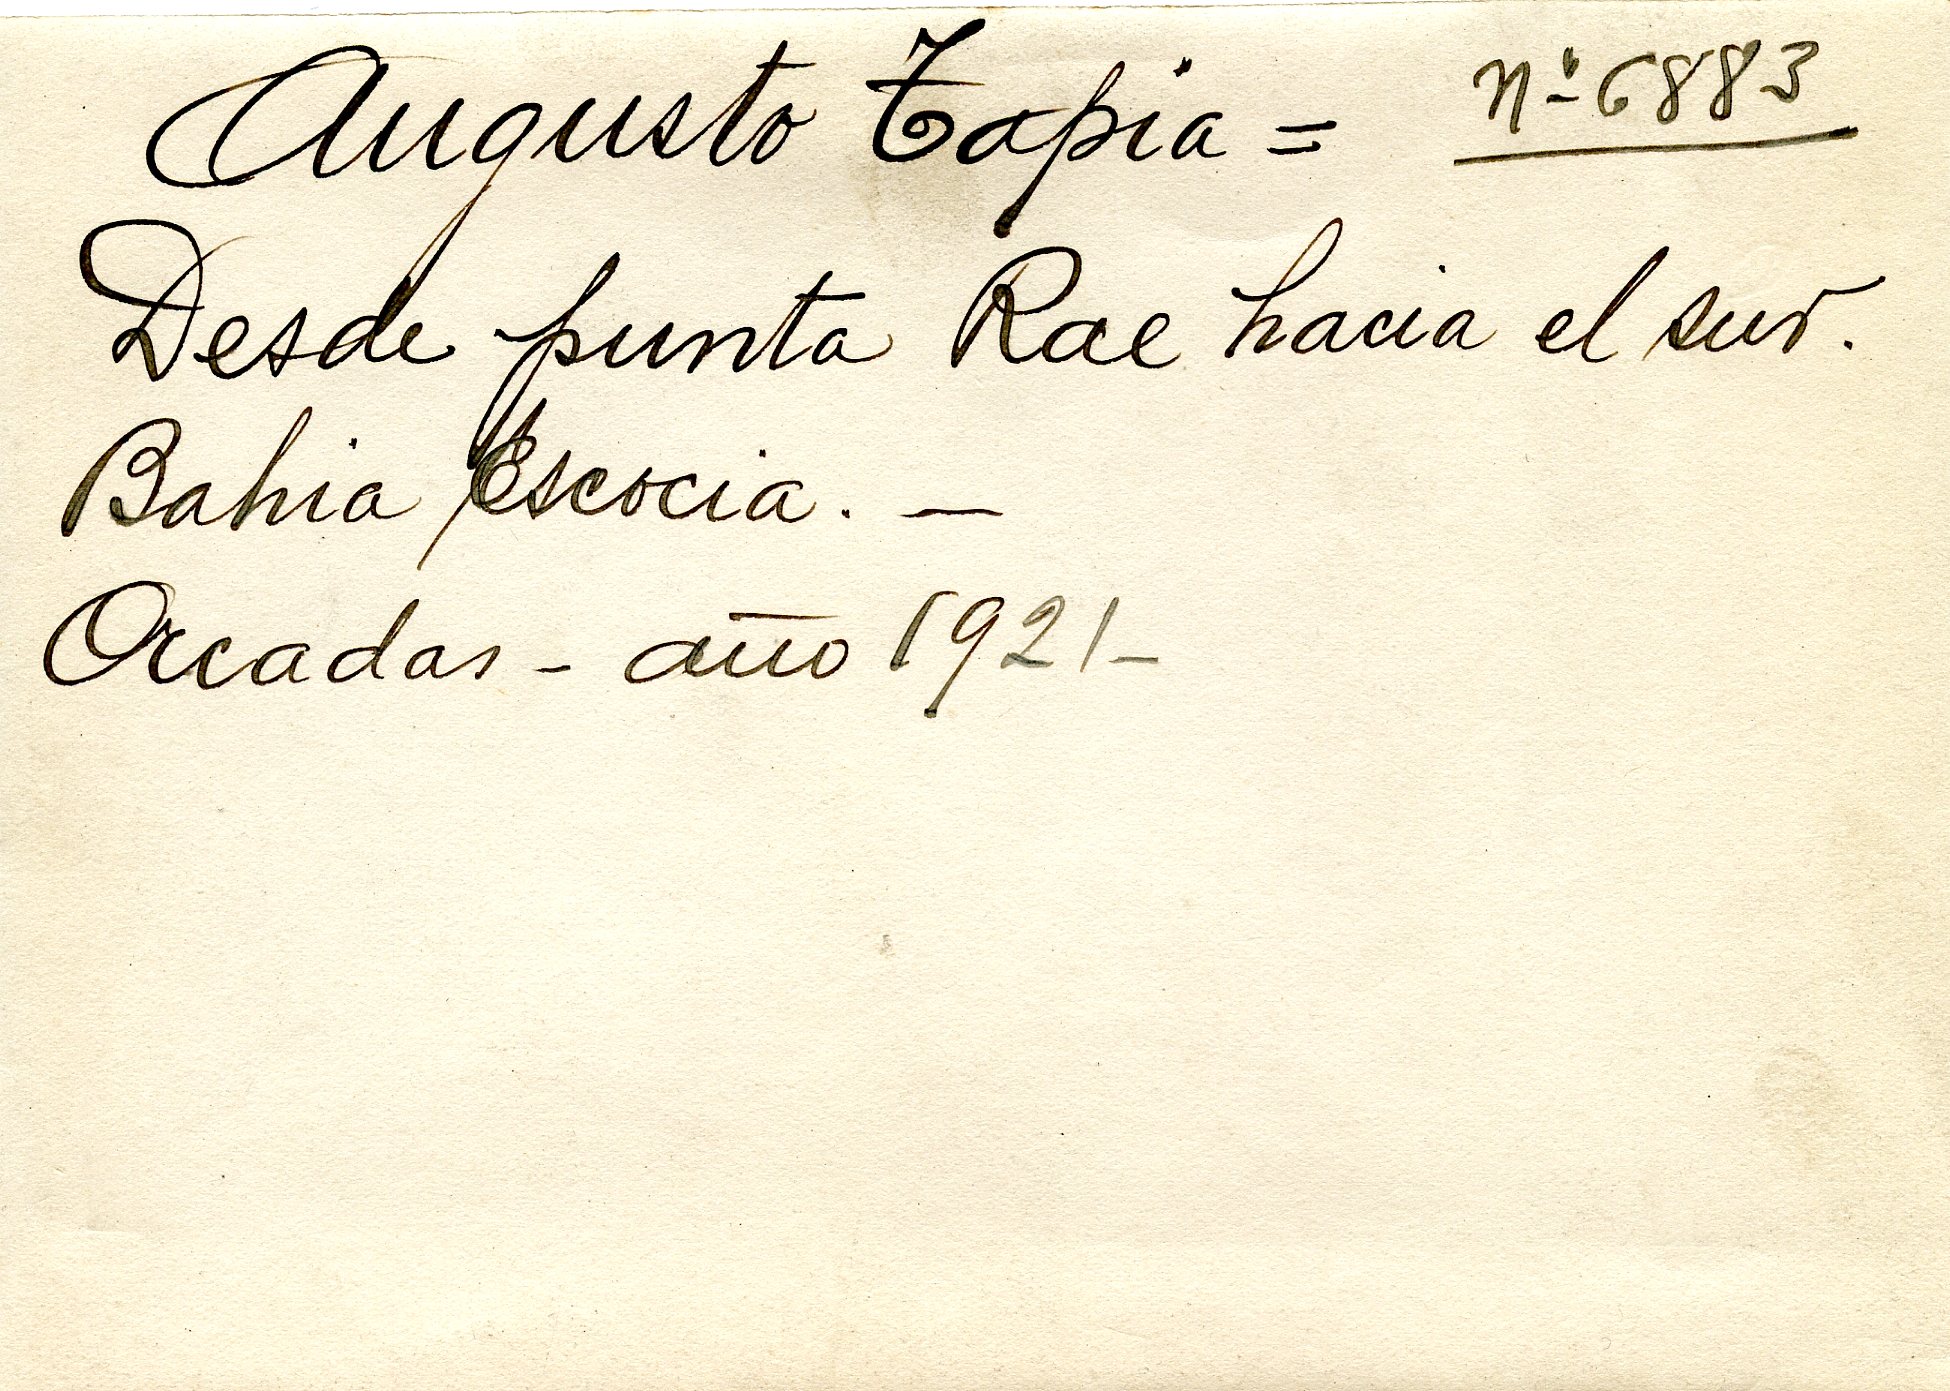 Augusto Tapia = nº 6883
Desde punta Rae hacia el sur.
Bahia Escocia. —
Orcadas - año 1921 -